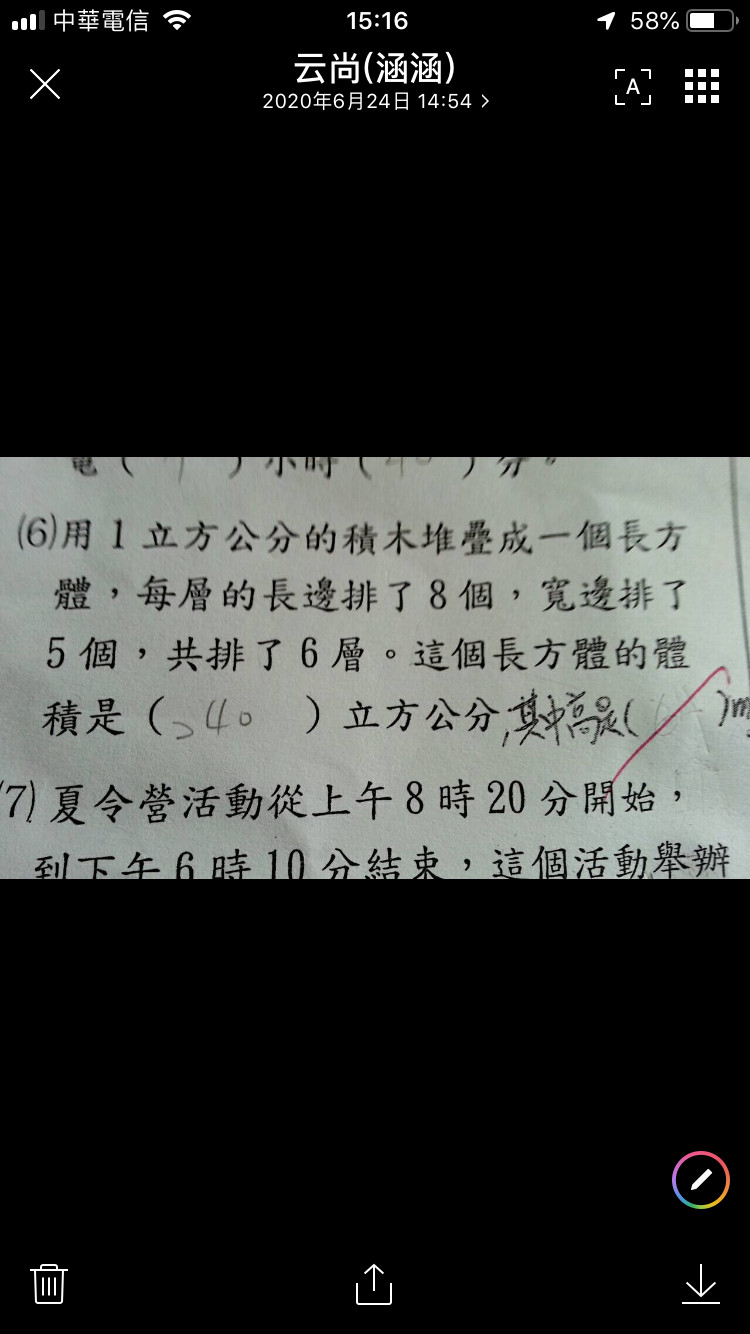 中華電信 15:16 58%
云尚(涵涵)
2020年6月24日 14:54
A
電( )小時(40)分。
(6)用1立方公分的積木堆疊成一個長方
體，每層的長邊排了8個，寬邊排了
5個，共排了6層。這個長方體的體
積是(240)立方公分,其中高是( )m
(7)夏令營活動從上午8時20分開始，
到下午6時10分結束，這個活動舉辦